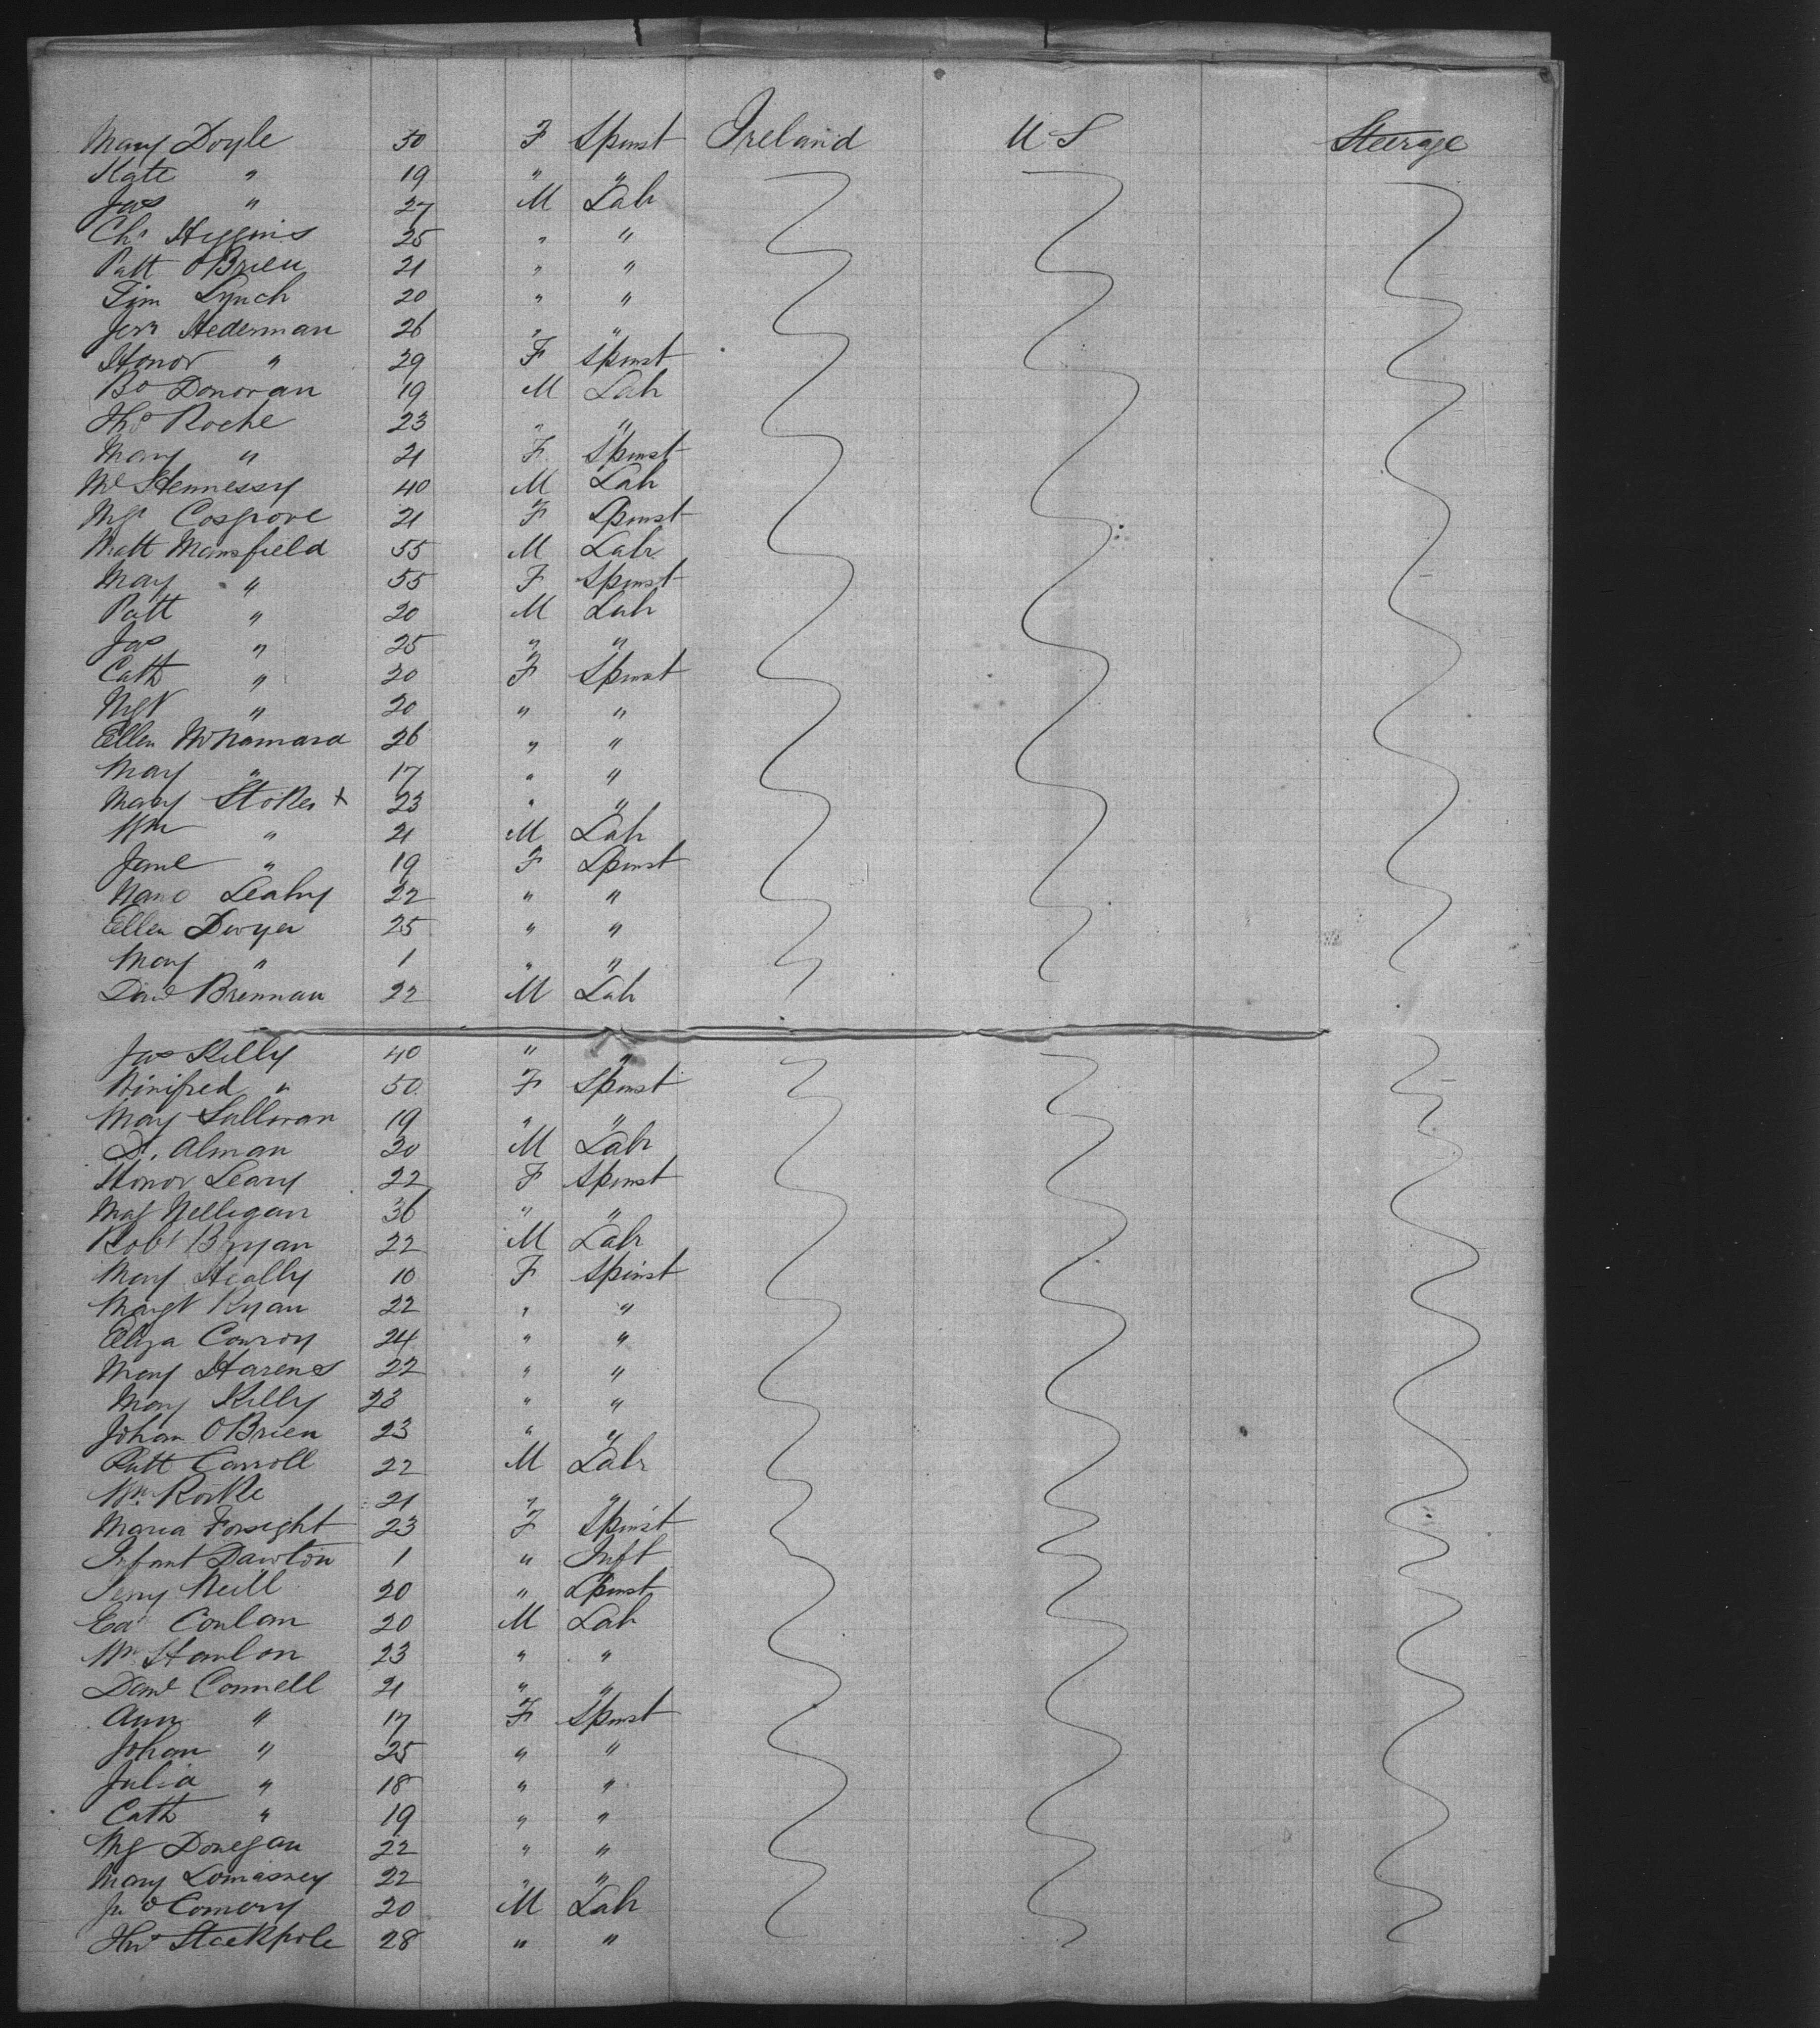 Mary Doyle 50 F Spinst Ireland U S Steerage
Kate " 19 " "
Jas " 27 M Lab
Chs Higgins 25 " "
Patt OBrien 21 " "
Tim Lynch 20 " "
Jerr Hederman 26 " "
Honor " 29 F Spinst
Bo Donovan 19 M Lab
Ths Roche 23 " "
Mary " 21 F Spinst
Ml Hennessy 40 M Lab
Mgt Cosgrove 21 F Spinst
Matt Mansfield 55 M Lab
Mary " 55 F Spinst
Patt " 20 M Lab
Jas " 25 " "
Cath " 20 F Spinst
Mgt " 20 " "
Ellen McNamara 26 " "
Mary " 17 " "
Mary Stokes + 23 " "
Wm " 21 M Lab
Jane " 19 F Spinst
Nano Leahy 22 " "
Ellen Dwyer 25 " "
Mary " 1 " "
Danl Brennan 22 M Lab
Jas Kelly 40 " "
Winifred " 50 F Spinst
Mary Sullivan 19 " "
D. Alman 20 M Lab
Honor Leary 22 F Spinst
Mag Nelligan 36 " "
Robt Bryan 22 M Lab
Mary Heally 10 F Spinst
Margt Ryan 22 " "
Eliza Conroy 24 " "
Mary Harens 22 " "
Mary Kelly 23 " "
Johan OBrien 23 " "
Patt Carroll 22 M Lab
Wm Rorke 21 " "
Maria Forsight 23 F Spinst
Infant Dawton 1 " Inft
Jeny Neill 20 " Spinst
Edd Conlan 20 M Lab
Wm Hanlon 23 " "
Danl Connell 21 " "
Ann " 17 F Spinst
Johan " 25 " "
Julia " 18 " "
Cath " 19 " "
Mg Donegan 22 " "
Mary Lomasney 22 " "
Jno Comery 20 M Lab
Ths Stackpole 28 " "